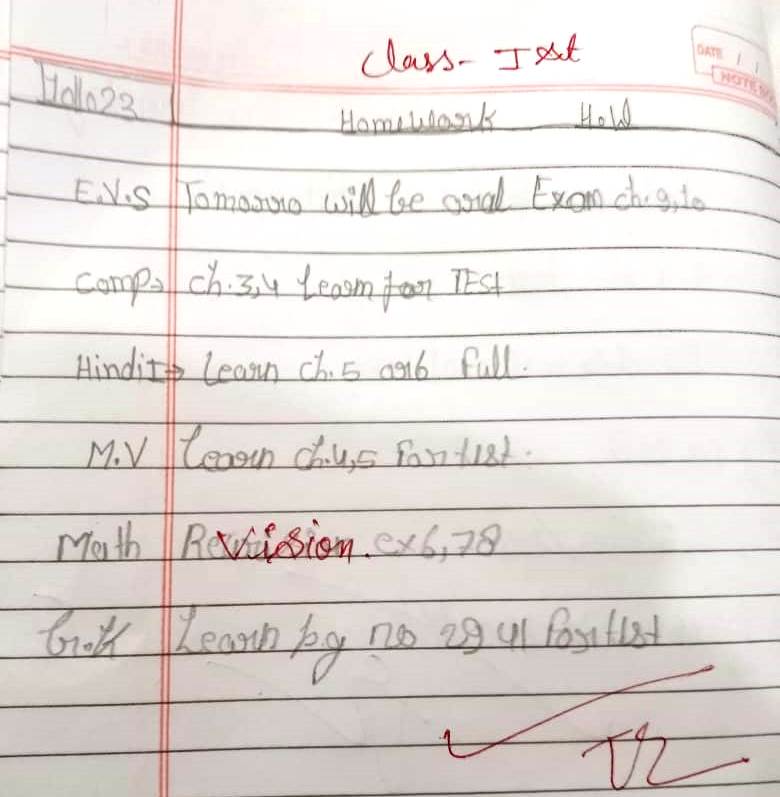 Class- Ist
DATE / /
Homework H.W
E.V.S Tomorro will be oral Exam ch.9,10
Comp→ ch.3,4 Learn for TESt
Hindi→ Learn ch.5 or6 full.
M.V Learn ch.4,5 For tist.
Math Revision. ex6,78
G.K Learn pg no 29 41 For tist